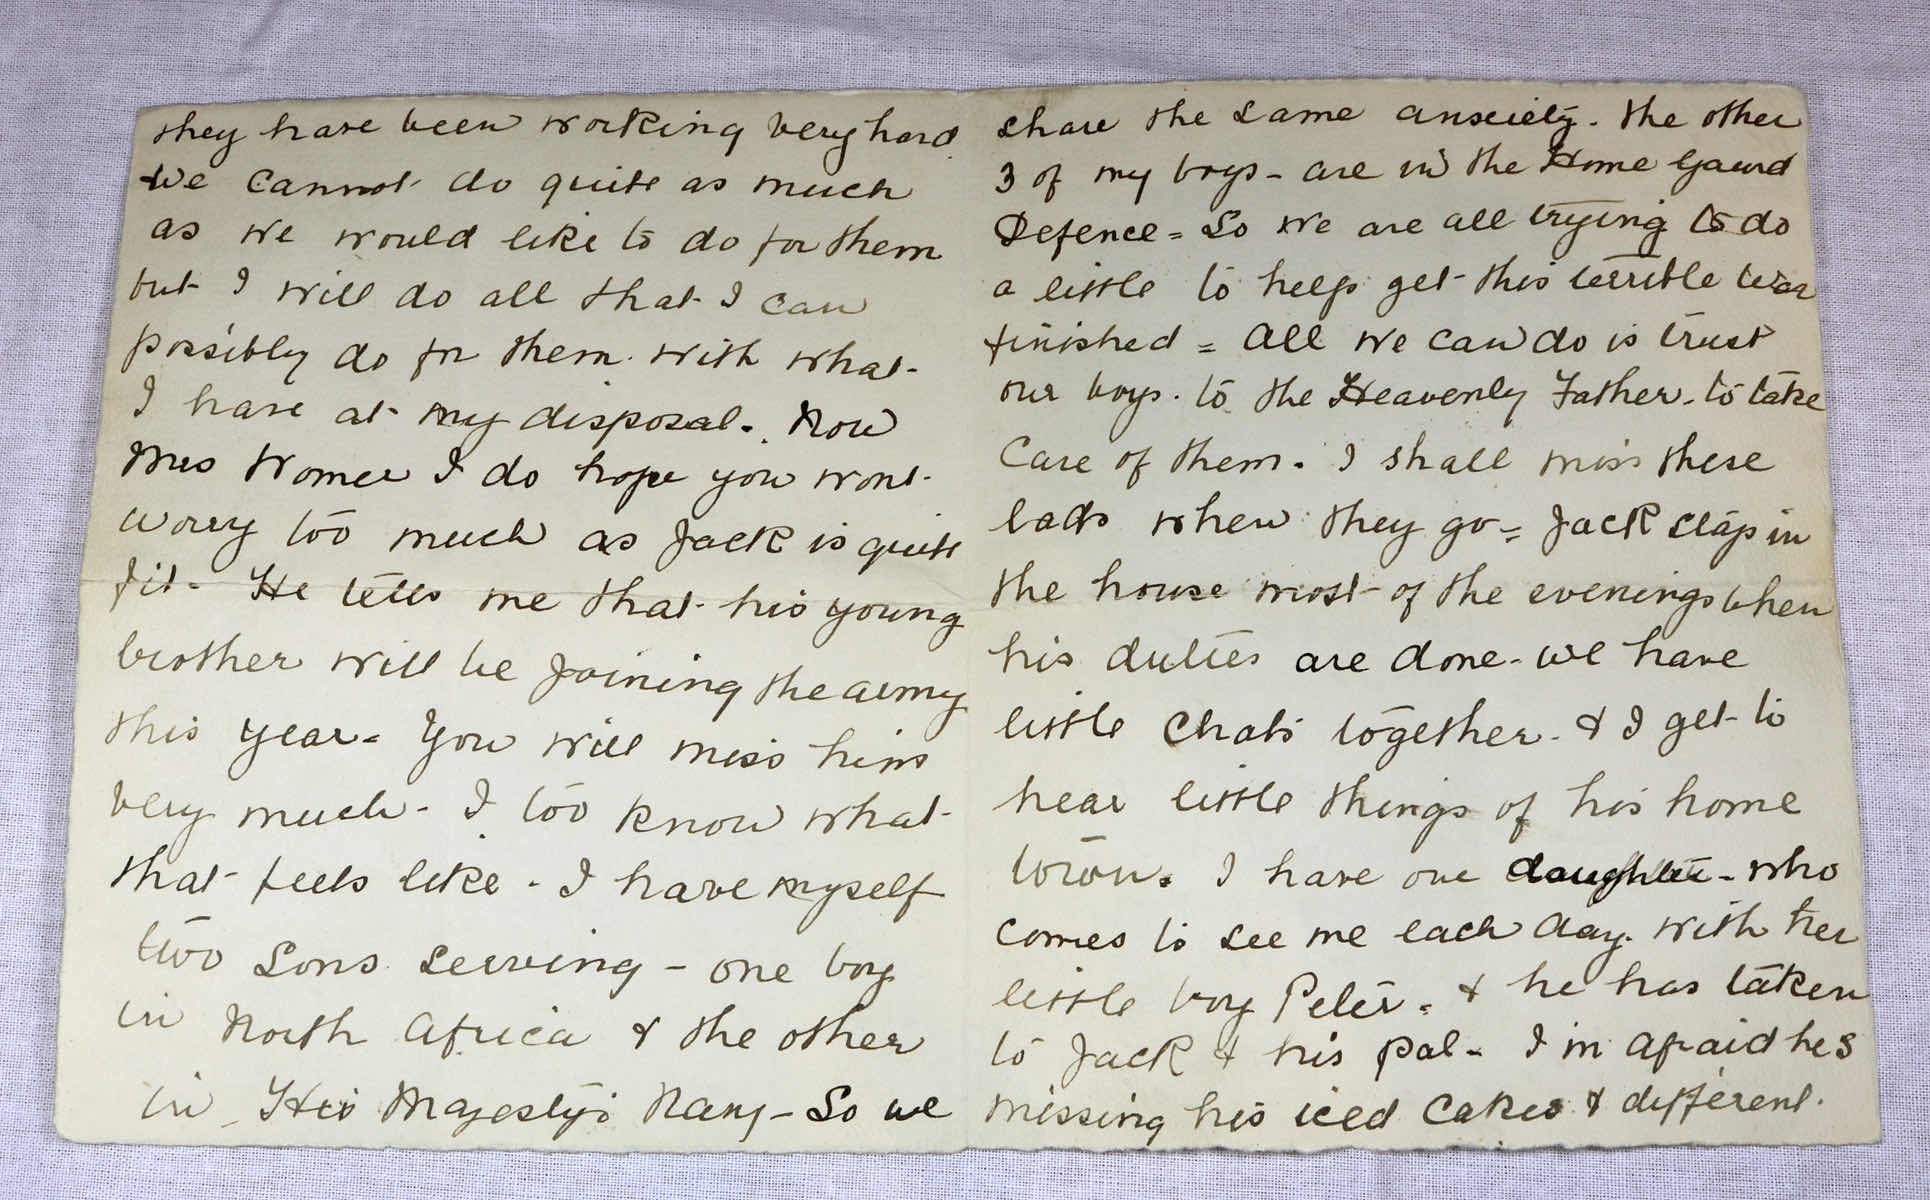 they have been working very hard
we cannot do quite as much
as we would like to do for them
but I will do all that I can
possibly do for them. with what
I have at my disposal. Now
Mrs Womer I do hope you wont
worry too much as Jack is quite
fit - He tells me that his young
brother will be joining the army
this year = You will miss him
very much - I too know what
that feels like - I have myself
two sons serving - one boy
in North Africa & the other
in His Majesty's Navy - So we
share the same anxiety. The other
3 of my boys - are in the Home Gaurd
Defence = So we are all trying to do
a little to help get this terrible war
finished = All we can do is trust
our boys. to the Heavenly Father. to take
care of them. I shall miss these
lads when they go = Jack claps in
the house most of the evenings when
his duties are done - we have
little chats together. & I get to
hear little things of his home
town. I have one daughter - who
comes to see me each day. with her
little boy Peter. & he has taken
to Jack & his pal - I'm afraid hes
missing his iced cakes & different.